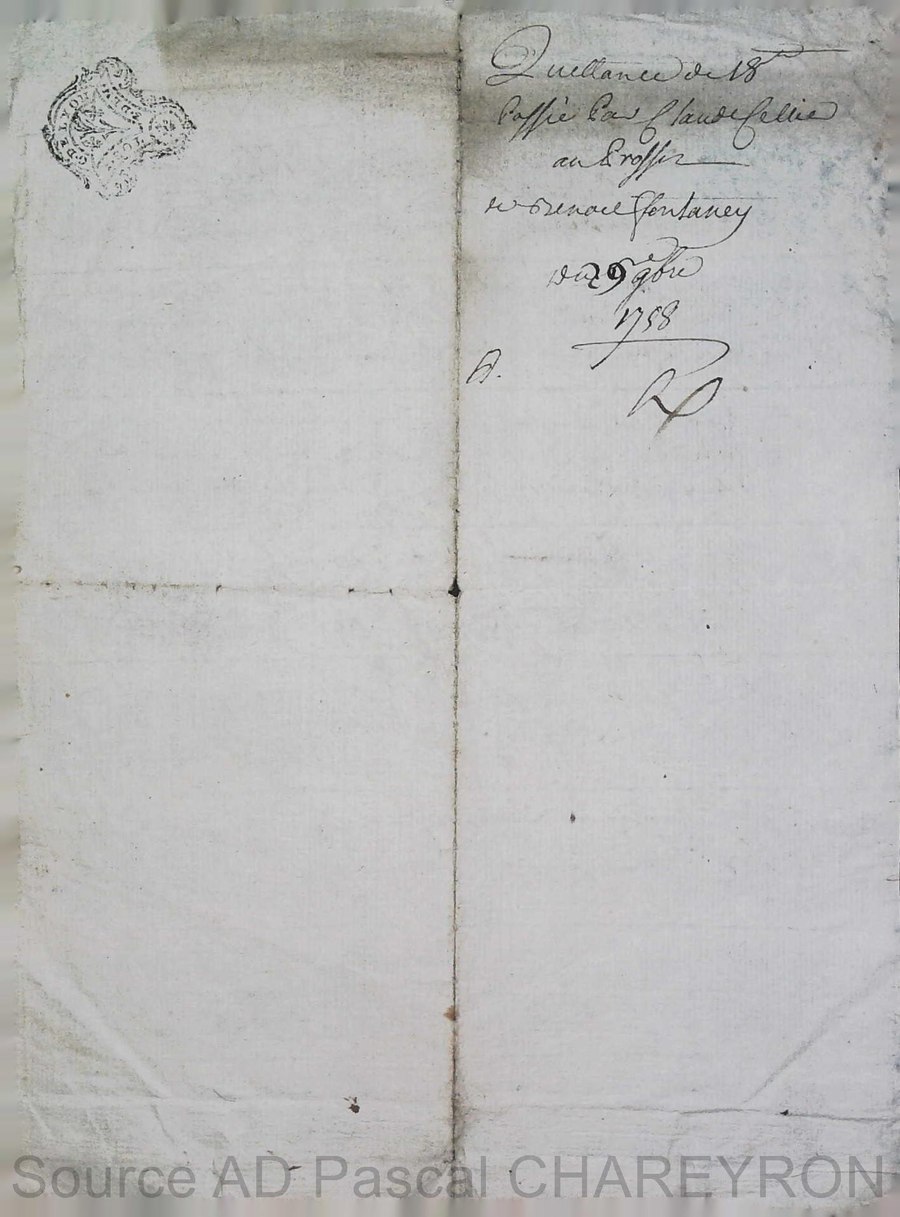 DE LYON
Quittance de 18ᵗᵗ
Passée Par Claude Cellier
au Proffit
de Benoit ffontaney
du 29ᵉ 9bre
1758
A.
Source AD Pascal CHAREYRON